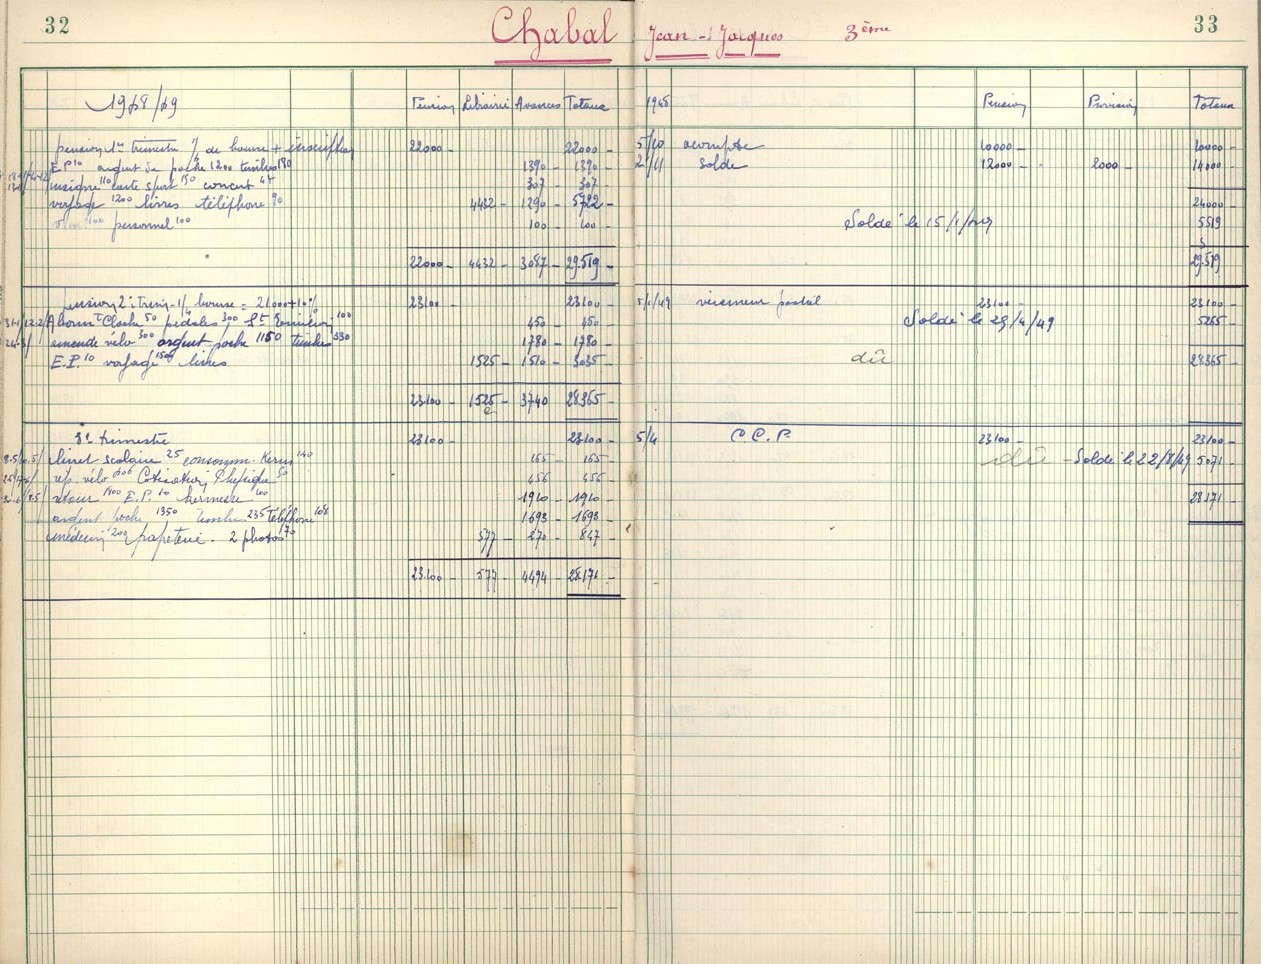 32
Chabal Jean-Jacques 3ème
33
1948/49 Pension Librairie Avances Totaux
pension 1er trimestre de bourse + inscription 22000 22000
E.P 10 argent de poche 1200 timbres 180 1390 1390
insigne 110 carte sport 150 concert 47 307 307
voyage 1200 livres téléphone 90 4432 1290 5722
100 personnel 100 100
22000 4432 3087 29.519
pension 2e trim 1/4 bourse = 21000+10% 23100 23100
50 pédales 300 100 450 450
amende vélo 300 argent poche 1150 timbres 330 1780 1780
E.P. 10 voyage 1500 livres 1525 1510 3035
23100 1525 3740 28365
3e trimestre 23100 23100
livret scolaire 25 consomm. 140 165 165
rep. vélo Cotisation Physique 50 456 456
retour 1800 E.P. 10 kermesse 100 1910 1910
argent poche 1350 timbres 235 téléphone 108 1693 1693
médecin 200 papeterie 2 photos 70 577 270 847
23.100 577 4494 28.171
1948 Pension Provision Totaux
5/10 acompte 10000 10000
2/11 solde 12000 2000 14000
24000
Soldé le 15/1/49 5519
29.519
5/1/49 virement postal 23100 23100
Soldé le 29/4/49 5265
dû 28365
5/4 C.C.P. 23100 23100
dû Soldé le 22/8/49 5071
28171